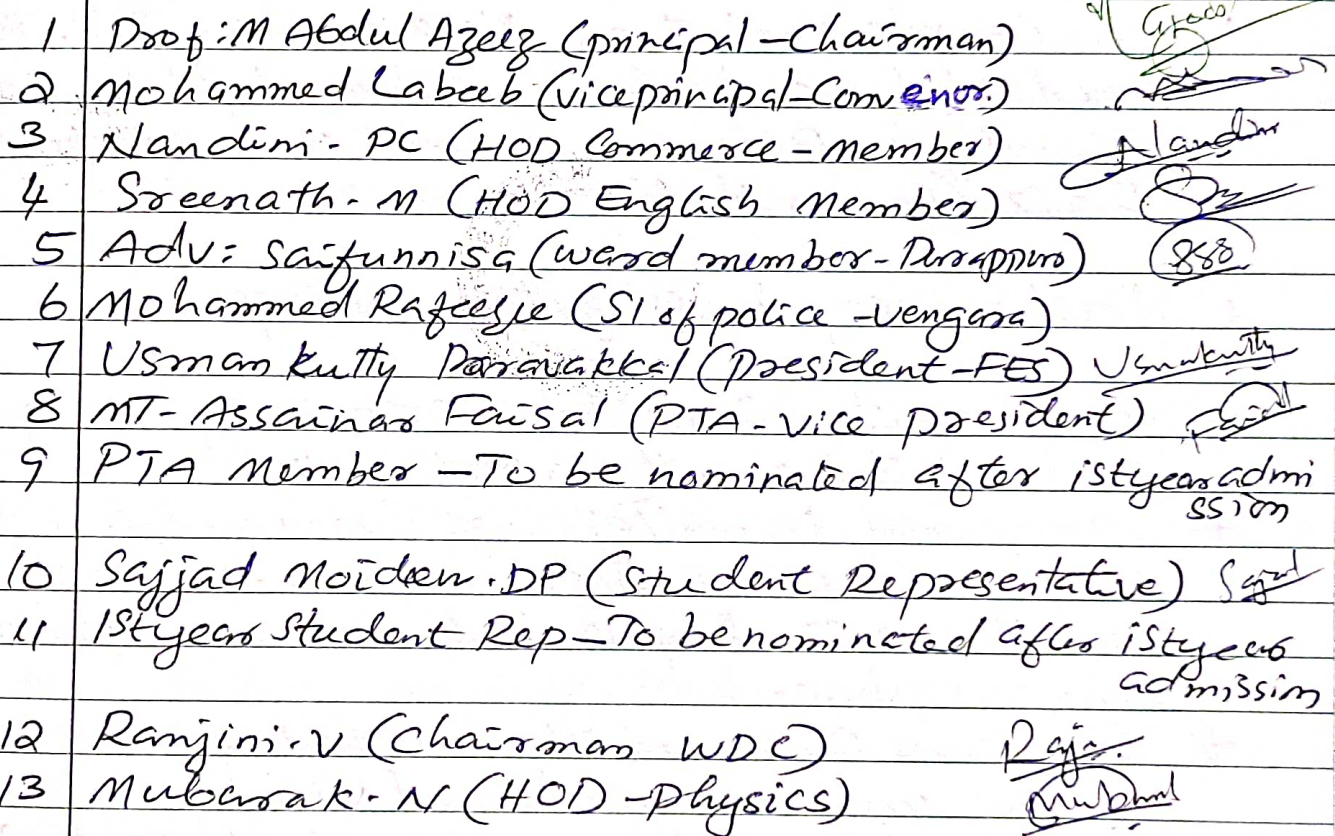 1 Prof: M Abdul Azeez (principal - Chairman)
2. Mohammed Labeeb (viceprincipal - Convenor.)
3 Nandini - PC (HOD Commerce - member) Nandini
4 Sreenath - M (HOD English Member)
5 Adv: Saifunnisa (ward member -
6 Mohammed (SI of police - vengara)
7 Usman kutty Paravakkal (president - FES) Usmankutty
8 MT - Assainar Faisal (PTA - Vice president)
9 PTA Member - To be nominated after istyear admi
ssion
10 Sajjad Moideen. DP (Student Representative)
11 1styear Student Rep - To be nominated after istyear
admission
12 Ranjini. V (Chairman WDC)
13 Mubarak - N (HOD - physics)